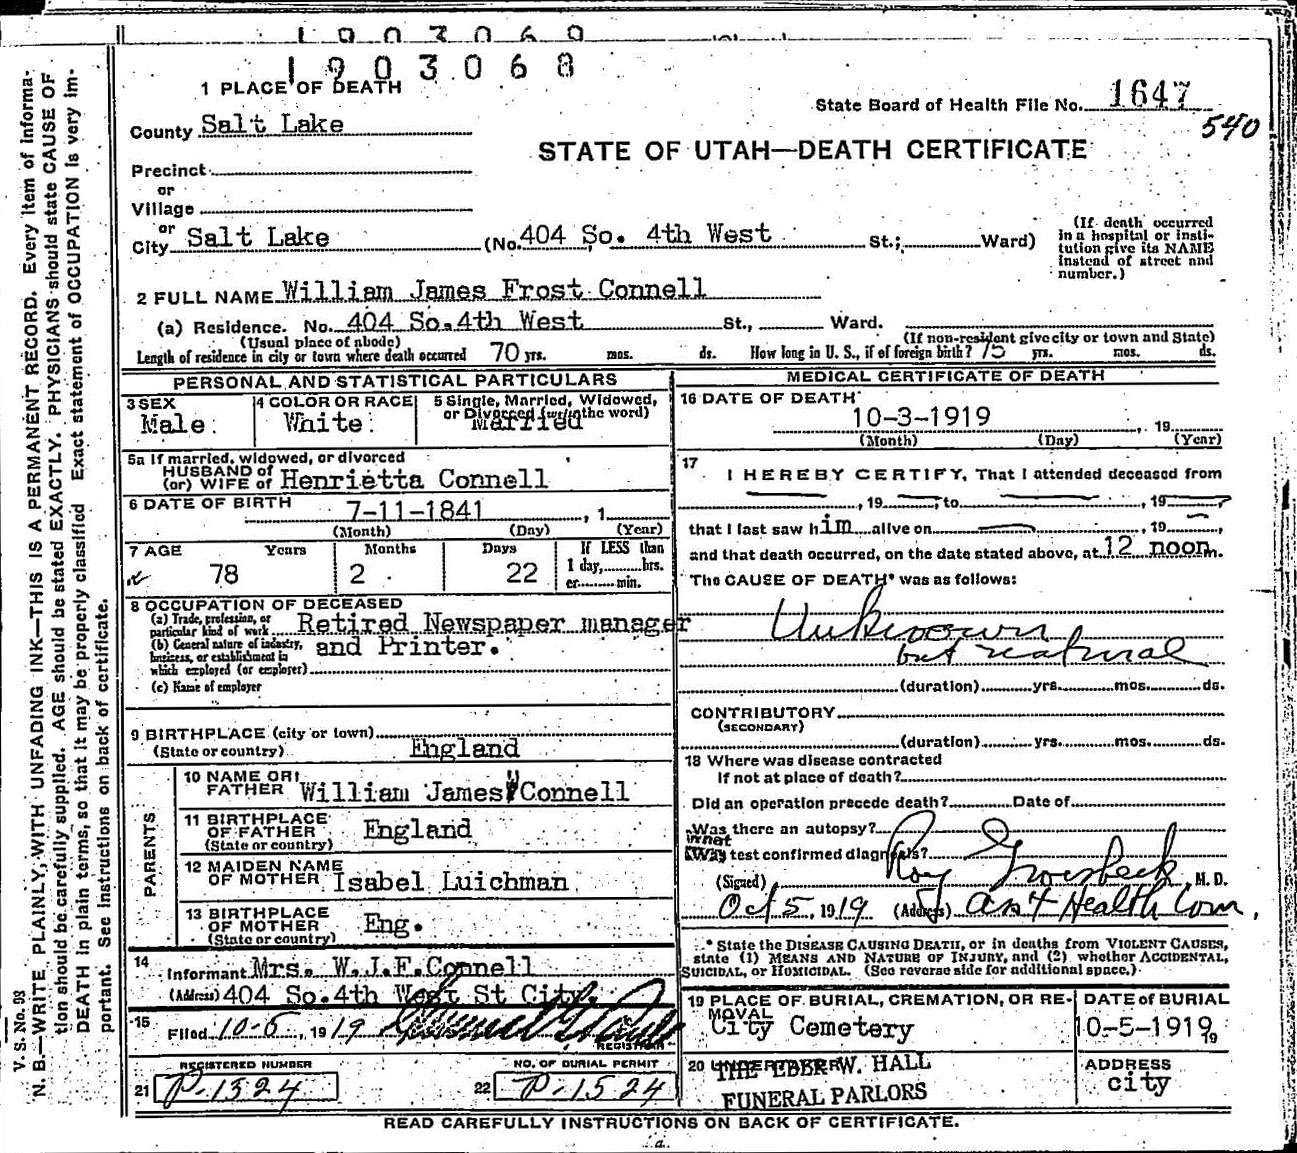 1903069
1903068
1 PLACE OF DEATH
State Board of Health File No. 1647
540
County Salt Lake
STATE OF UTAH—DEATH CERTIFICATE
Precinct
or
Village
or
City Salt Lake (No. 404 So. 4th West St.; Ward)
(If death occurred
in a hospital or insti-
tution give its NAME
instead of street and
number.)
2 FULL NAME William James Frost Connell
(a) Residence. No. 404 So.4th West St., Ward.
(Usual place of abode) (If non-resident give city or town and State)
Length of residence in city or town where death occurred 70 yrs. mos. ds. How long in U. S., if of foreign birth? 75 yrs. mos. ds.
PERSONAL AND STATISTICAL PARTICULARS
3 SEX
Male.
4 COLOR OR RACE
White.
5 Single, Married, Widowed,
or Divorced (write the word)
Married
5a If married, widowed, or divorced
HUSBAND of
(or) WIFE of Henrietta Connell
6 DATE OF BIRTH 7-11-1841, 1
(Month) (Day) (Year)
7 AGE Years Months Days If LESS than
1 day, hrs.
or min.
78 2 . 22
8 OCCUPATION OF DECEASED
(a) Trade, profession, or
particular kind of work Retired Newspaper manager
(b) General nature of industry,
business, or establishment in
which employed (or employer) and Printer.
(c) Name of employer
9 BIRTHPLACE (city or town)
(State or country) England
PARENTS
10 NAME OF
FATHER William James Connell
11 BIRTHPLACE
OF FATHER
(State or country) England
12 MAIDEN NAME
OF MOTHER Isabel Luichman
13 BIRTHPLACE
OF MOTHER
(State or country) Eng.
14
Informant Mrs. W.J.F.Connell
(Address) 404 So.4th West St City.
15
Filed 10-6, 1919
REGISTRAR
REGISTERED NUMBER
21 P-1324
NO. OF BURIAL PERMIT
22 P-1524
MEDICAL CERTIFICATE OF DEATH
16 DATE OF DEATH
10-3-1919, 19
(Month) (Day) (Year)
17
I HEREBY CERTIFY, That I attended deceased from
, 19 , to , 19
that I last saw him alive on , 19 ,
and that death occurred, on the date stated above, at 12 noon m.
The CAUSE OF DEATH* was as follows:
Unknown
but natural
(duration) yrs. mos. ds.
CONTRIBUTORY
(SECONDARY)
(duration) yrs. mos. ds.
18 Where was disease contracted
If not at place of death?
Did an operation precede death? Date of
Was there an autopsy?
What test confirmed diagnosis?
(Signed) Roy Groesbeck, M. D.
Oct 5, 1919 (Address) Ast Health Com.
* State the DISEASE CAUSING DEATH, or in deaths from VIOLENT CAUSES,
state (1) MEANS AND NATURE OF INJURY, and (2) whether ACCIDENTAL,
SUICIDAL, or HOMICIDAL. (See reverse side for additional space.)
19 PLACE OF BURIAL, CREMATION, OR RE-
MOVAL
City Cemetery
DATE OF BURIAL
10-5-1919 19
20 THE EBER W. HALL
FUNERAL PARLORS
ADDRESS
city
READ CAREFULLY INSTRUCTIONS ON BACK OF CERTIFICATE.
V. S. No. 93
N. B.—WRITE PLAINLY, WITH UNFADING INK—THIS IS A PERMANENT RECORD. Every item of informa-
tion should be carefully supplied. AGE should be stated EXACTLY. PHYSICIANS should state CAUSE OF
DEATH in plain terms, so that it may be properly classified Exact statement of OCCUPATION is very im-
portant. See instructions on back of certificate.